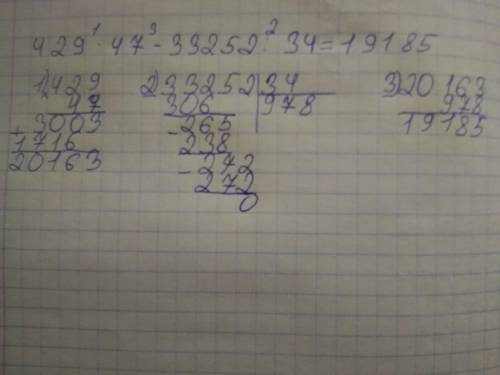 429 ¹· 47 ³- 33252 ²: 34 = 19185
1) 429
47
3003
+
1716
20163
2) 33252 | 34
306 978
- 265
238
- 272
272
0
3) 20163
978
19185